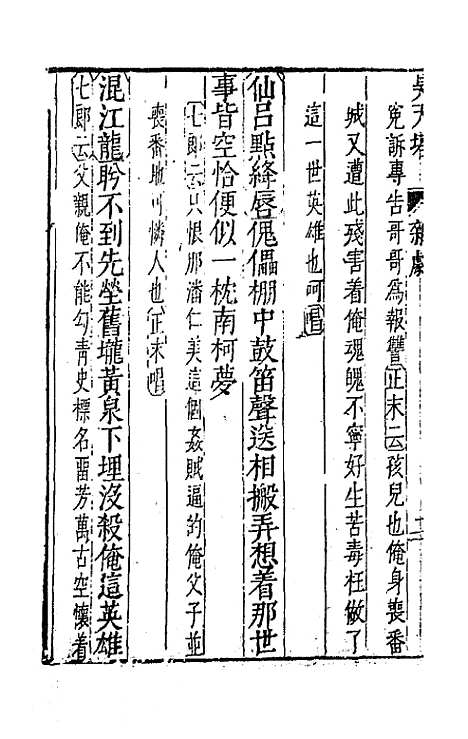 昊天塔 雜劇
冤訴專告哥哥爲報讐正末云孩兒也俺身喪番
城又遭此殘害着俺魂魄不寧好生苦毒枉做了
這一世英雄也呵唱
仙呂點絳唇傀儡棚中鼓笛聲送相搬弄想着那世
事皆空恰便似一枕南柯夢
七郎云只恨那潘仁美這個姦賊逼的俺父子並
喪番地可憐人也正末唱
混江龍盻不到先塋舊壠黃泉下埋沒殺俺這英雄
七郎云父親俺不能勾青史標名畱芳萬古空懷着